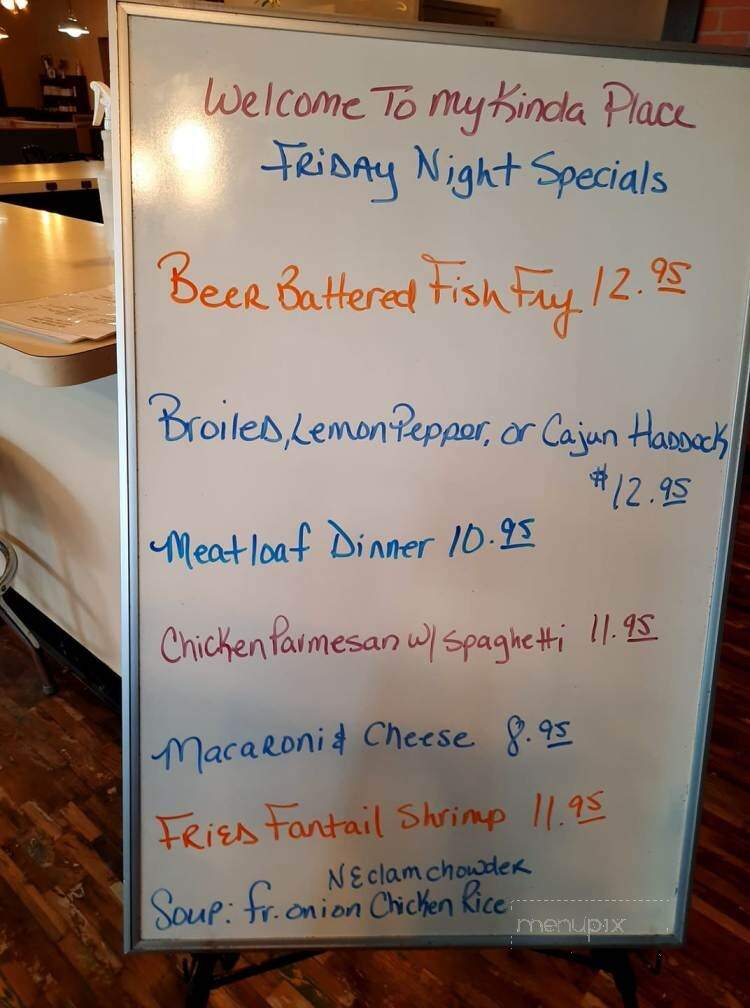 Welcome To my Kinda Place
Friday Night Specials
Beer Battered Fish Fry 12.95
Broiled, Lemon Pepper, or Cajun Haddock
$12.95
Meatloaf Dinner 10.95
Chicken Parmesan w/ spaghetti 11.95
Macaroni & Cheese 8.95
Fried Fantail Shrimp 11.95
NE clam chowder
Soup: fr. onion Chicken Rice
menupix